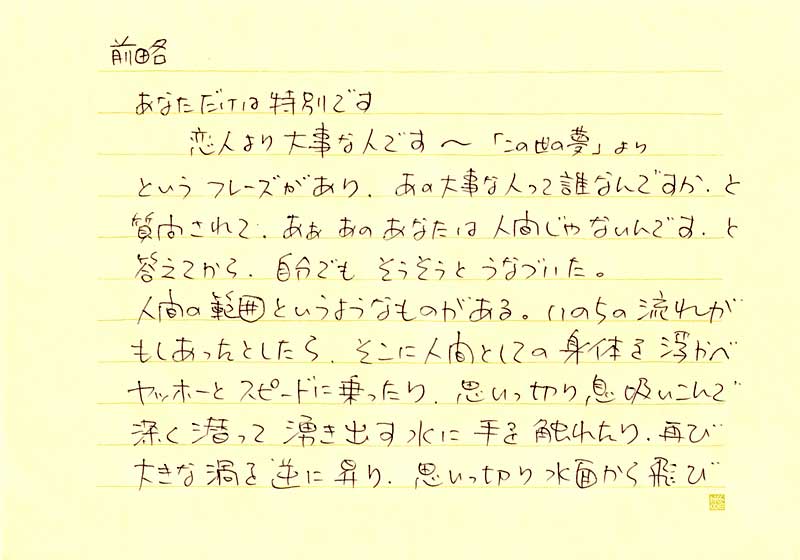 前略
あなただけは特別です
恋人より大事な人です〜「この世の夢」より
というフレーズがあり、あの大事な人って誰なんですか、と
質問されて、あぁあのあなたは人間じゃないんです、と
答えてから、自分でもそうそうとうなづいた。
人間の範囲というようなものがある。いのちの流れが
もしあったとしたら、そこに人間としての身体を浮かべ
ヤッホーとスピードに乗ったり、思いっ切り息吸いこんで
深く潜って湧き出す水に手を触れたり、再び
大きな渦を逆に昇り、思いっ切り水面から飛び